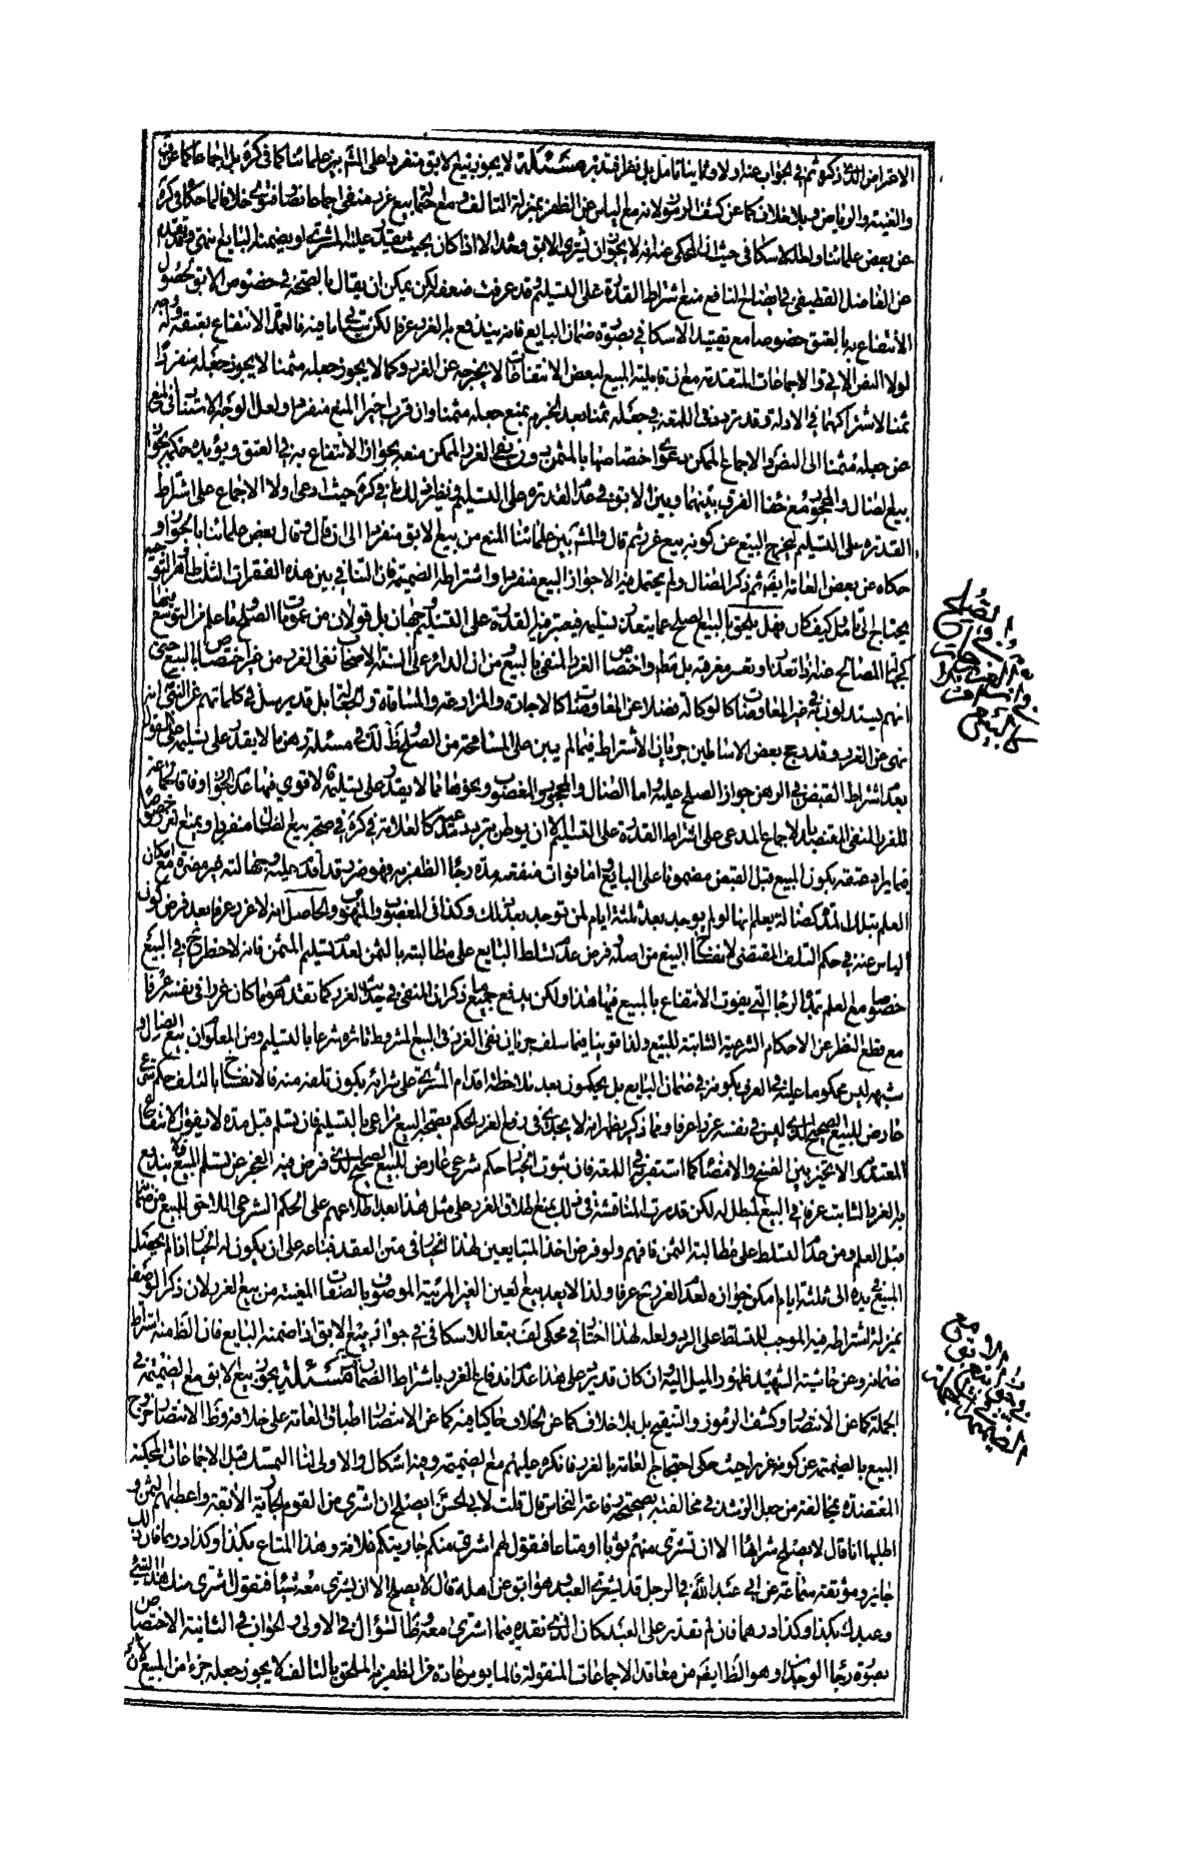 الاعتراض الذى ذكره ثم فى الجواب عنه اولا وثانيا تامل بل نظر فتدبر مسئلة لا يجوز بيع الابق منفردا على المش بين علمائنا كما فى كره بل اجماعا كما عن ف
والغنية والرياض وبلا خلاف كما عن كشف الرموز لانه مع الياس عن الظفر بمنزلة التالف ومع احتماله بيع غرر منفى اجماعا نصا وفتوى خلافا لما حكاه فى كره
عن بعض علمائنا ولعله الاسكافى حيث ان المحكى عنه انه لا يجوز ان يشترى الابق وحده الا اذا كان بحيث يقدر عليه المشترى او يضمنه البايع انتهى وقد تقدم
عن الفاضل القطيفى فى ايضاح النافع منع اشتراط القدرة على التسليم وقد عرفت ضعفه لكن يمكن ان يقال بالصحة فى خصوص الابق لحصول
الانتفاع به بالعتق خصوصا مع تقييد الاسكافى بصورة ضمان البايع فانه يندفع به الغرر عرفا لكن سيجئ ما فيه فالعمدة الانتفاع بعتقه وله وجه
لولا النص الاتى والاجماعات المتقدمة مع ان قابلية المبيع لبعض الانتفاعات لا يخرجه عن الغرر وكما لا يجوز جعله مثمنا لا يجوز جعله منفردا
ثمنا لاشتراكهما فى الادلة وقد تردد فى اللمعة فى جعله ثمنا بعد الجزم بمنع جعله مثمنا وان قرب اخيرا المنع منفردا ولعل الوجه الاستناد فى المنع
عن جعله مثمنا الى النص والاجماع الممكن دعوى اختصاصهما بالمثمن دون نفى الغرر الممكن منعه بجواز الانتفاع به فى العتق ويؤيده حكمه بجواز
بيع الضال والمجحود مع خفاء الفرق بينهما وبين الابق فى عدم القدرة على التسليم ونظير ذلك ما فى كره حيث ادعى اولا الاجماع على اشتراط
القدرة على التسليم ليخرج البيع عن كونه بيع غرر ثم قال والمش بين علمائنا المنع من بيع الابق منفردا الى ان قال وقال بعض علمائنا بالجواز و
حكاه عن بعض العامة ايضا ثم ذكر الضال ولم يحتمل فيه الا جواز البيع منفردا واشتراط الضميمة فان التنافى بين هذه الفقرات الثلث ظاهر والتوجيه
يحتاج الى تامل وكيف كان فهل يلحق بالبيع الصلح عما يتعذر تسليمه فيعتبر فيه القدرة على التسليم وجهان بل قولان من عمومات الصلح وما علم من التوسع فيها
كجهالة المصالح عنه اذا تعذر او تعسر معرفته بل مط واختصاص الغرر المنفى بالبيع ومن ان الدائر على السنة الاصحاب نفى الغرر من غير اختصاص بالبيع حتى
انهم يستدلون به فى غير المعاوضات كالوكالة فضلا عن المعاوضات كالاجارة والمزارعة والمساقاة والجعالة بل قد يرسل فى كلماتهم عن النبى انه
نهى عن الغرر وقد رجح بعض الاساطين جريان الاشتراط فيما لم يبين على المسامحة من الصلح وظ لك فى مسئلة رهن ما لا يقدر على تسليمه على القول
بعدم اشتراط القبض فى الرهن جواز الصلح عليه واما الضال والمجحود والمغصوب ونحوها مما لا يقدر على تسليمه فالاقوى فيها عدم الجواز وفاقا لجماعة
للغرر المنفى المعتضد بالاجماع المدعى على اشتراط القدرة على التسليم الا ان يوهن بتردد مدعيه كالعلامة فى كره فى صحة بيع الضال منفردا ويمنع الغرر خصوصا
فيما يراد عتقه بكون المبيع قبل القبض مضمونا على البايع واما فوات منفعته مدة رجاء الظفر به فهو ضرر قد اقدم عليه وجهالته غير مضرة مع امكان
العلم بتلك المدة كضالة يعلم انها لو لم يوجد بعد ثلثة ايام لن توجد بعد ذلك وكذا فى المغصوب والمنهوب والحاصل انه لا غرر عرفا بعد فرض كون
الياس عنه فى حكم التلف المقتضى لانفساخ البيع من اصله وفرض عدم تسلط البايع على مطالبته بالثمن لعدم تسليم المثمن فانه لا خطر ح فى البيع
خصوصا مع العلم بمدة الرجاء التى يفوت الانتفاع بالمبيع فيها هذا ولكن يدفع جميع ما ذكر ان المنفى فى حديث الغرر كما تقدم هو ما كان غررا فى نفسه عرفا
مع قطع النظر عن الاحكام الشرعية الثابتة للبيع ولذا قوينا فيما سلف جريان نفى الغرر فى البيع المشروط تاثيره شرعا بالتسليم ومن المعلوم ان بيع الضال و
شبهه ليس محكوما عليه فى العرف بكونه فى ضمان البايع بل يحكمون بعد ملاحظة اقدام المشترى على شرائه بكون تلفه منه فالانفساخ بالتلف حكم شرعى
عارض للبيع الصحيح الذى ليس فى نفسه غررا عرفا ومما ذكر يظهر انه لا يجدى فى دفع الغرر الحكم بصحة البيع مراعى بالتسليم فان تسلم قبل مدة لا يفوت الانتفاع
المعتد به والا تخير بين الفسخ والامضاء كما استقربه فى اللمعة فان ثبوت الخيار حكم شرعى عارض للبيع الصحيح الذى فرض فيه العجز عن تسلم المبيع فلا يندفع
به الغرر الثابت عرفا فى البيع المبطل له لكن قد مرت المناقشة فى ذلك بمنع اطلاق الغرر على مثل هذا بعد اطلاعهم على الحكم الشرعى اللاحق للمبيع من ضمانه
قبل العلم ومن عدم التسلط على مطالبة الثمن فافهم ولو فرض اخذ المتبايعين لهذا الخيار فى متن العقد فباعه على ان يكون له الخيار اذا لم يحصل
المبيع فى يده الى ثلثة ايام امكن جوازه لعدم الغرر ح عرفا ولذا لا يعد بيع العين الغير المرئية الموصوف بالصفات المعينة من بيع الغرر لان ذكر الوصف
بمنزلة اشتراطه فيه الموجب للتسلط على الرد ولعله لهذا اختار فى محكى لف تبعا للاسكافى فى جواز بيع الابق اذا ضمنه البايع فان الظ منه اشتراط
ضمانه وعن حاشية الشهيد ظهور الميل اليه وان كان قد يرد على هذا عدم اندفاع الغرر باشتراط الضمان فتامل مسئلة يجوز بيع الابق مع الضميمة فى
الجملة كما عن الانتصار وكشف الرموز والتنقيح بل بلا خلاف كما عن الخلاف حاكيا فيه كما عن الانتصار اطباق العامة على خلافه وظ الانتصار خروج
البيع بالضميمة عن كونه غررا حيث حكى احتجاج العامة بالغرر فانكره عليهم مع الضميمة وفيه اشكال والاولى لنا التمسك قبل الاجماعات المحكية
المعتضدة بمخالفة من جعل الرشد فى مخالفته بصحيحة رفاعة النخاس قال قلت لابى الحسن ايصلح ان اشترى من القوم الجارية الابقة واعطيهم الثمن و
اطلبها انا قال لا يصلح شراؤها الا ان تشترى منهم ثوبا او متاعا فتقول لهم اشترى منكم جاريتكم فلانة وهذا المتاع بكذا وكذا درهما فان ذلك
جايز وموثقة سماعة عن ابى عبد الله فى الرجل قد يشترى العبد وهو ابق عن اهله قال لا يصلح الا ان يشترى معه شيئا فيقول اشترى منك هذا الشئ
وعبدك بكذا وكذا درهما فان لم نقدر على العبد كان الذى نقده فيما اشترى معه وظ السؤال فى الاولى والجواب فى الثانية الاختصاص
بصورة رجاء الوجدان وهو الظ ايضا من معاقد الاجماعات المنقولة فالمايوس عادة من الظفر به الملحق بالتالف لا يجوز جعله جزءا من المبيع لان